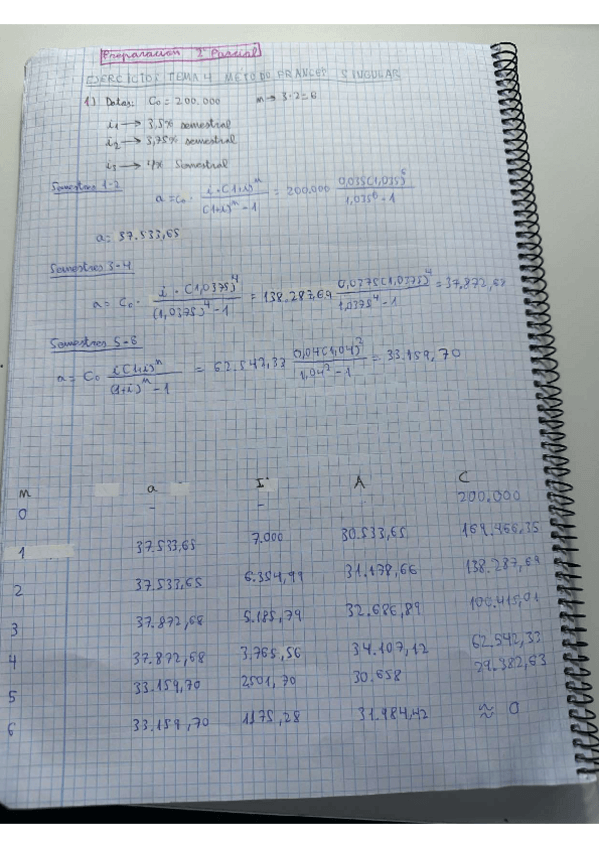 Preparacion 2º Parcial
EJERCICIOS TEMA 4 METODO FRANCES SINGULAR
1.) Datos: C₀ = 200.000 m → 3·2=6
i₁ → 3,5% semestral
i₂ → 3,75% semestral
i₃ → 4% Semestral
Semestres 1-2 a = C₀ · i·(1+i)^m / (1+i)^m - 1 = 200.000 0,035(1,035)^6 / 1,035^6 - 1
a = 37.533,65
Semestres 3-4
a = C₀ · i · (1,0375)^4 / (1,0375)^4 - 1 = 138.287,69 0,0375(1,0375)^4 / 1,0375^4 - 1 = 37,872,68
Semestres 5-6
a = C₀ i(1+i)^m / (1+i)^m - 1 = 62.542,33 0,04(1,04)^2 / 1,04^2 - 1 = 33.159,70
m a I A C
0 - - - 200.000
1 37.533,65 7.000 30.533,65 169.466,35
2 37.533,65 6.354,99 31.178,66 138.287,69
3 37.872,68 5.185,79 32.686,89 105.600,80
4 37.872,68 3.765,56 34.107,12 62.542,33
5 33.159,70 2501,70 30.658 29.382,63
6 33.159,70 1175,28 31.984,42 ≈ 0